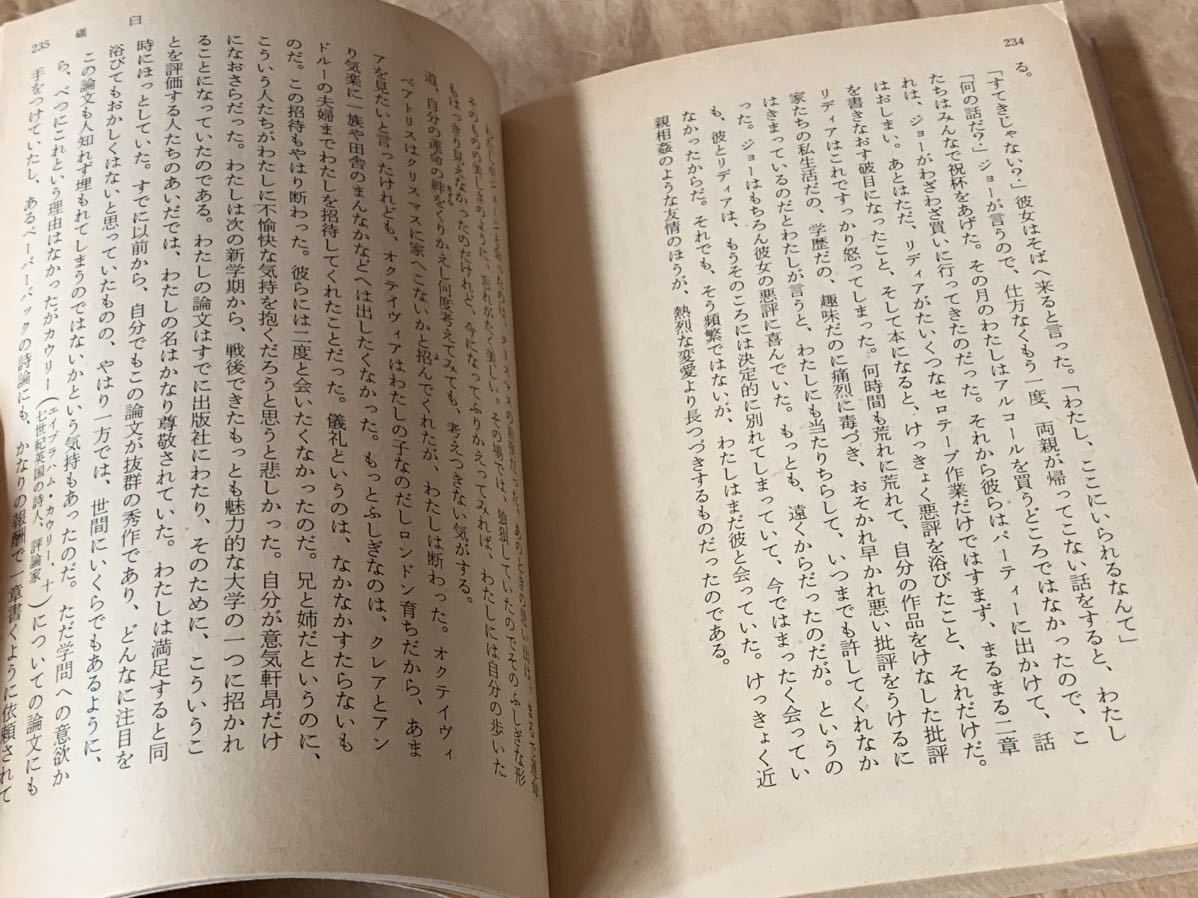 234
る。
「すてきじゃない?」彼女はそばへ来ると言った。「わたし、ここにいられるなんて」
「何の話だ?」ジョーが言うので、仕方なくもう一度、両親が帰ってこない話をすると、わたし
たちはみんなで祝杯をあげた。その月のわたしはアルコールを買うどころではなかったので、こ
れは、ジョーがわざわざ買いに行ってきたのだった。それから彼らはパーティーに出かけて、話
はおしまい。あとはただ、リディアがたいくつなセロテープ作業だけではすまず、まるまる二章
を書きなおす破目になったこと、そして本になると、けっきょく悪評を浴びたこと、それだけだ。
リディアはこれですっかり怒ってしまった。何時間も荒れに荒れて、自分の作品をけなした批評
家たちの私生活だの、学歴だの、趣味だのに痛烈に毒づき、おそかれ早かれ悪い批評をうけるに
はきまっているのだとわたしが言うと、わたしにも当たりちらして、いつまでも許してくれなか
った。ジョーはもちろん彼女の悪評に喜んでいた。もっとも、遠くからだったのだが。というの
も、彼とリディアは、もうそのころには決定的に別れてしまっていて、今ではまったく会ってい
なかったからだ。それでも、そう頻繁ではないが、わたしはまだ彼と会っていた。けっきょく近
親相姦のような友情のほうが、熱烈な変愛より長つづきするものだったのである。
235
碾
臼
そのものの美しさのように、忘れがたく美しい。その場では、狼狽していたのでそのふしぎな形
もはっきり見えなかったのだけれど、今になってふりかえってみれば、わたしには自分の歩いた
道、自分の運命の絆をくりかえし何度考えてみても、考えつきない気がする。
ベアトリスはクリスマスに家へこないかと招んでくれたが、わたしは断わった。オクテイヴィ
アを見たいと言ったけれども、オクテイヴィアはわたしの子なのだしロンドン育ちだから、あま
り気楽に一族や田舎のまんなかなどへは出したくなかった。もっとふしぎなのは、クレアとアン
ドルーの夫婦までわたしを招待してくれたことだった。儀礼というのは、なかなかすたらないも
のだ。この招待もやはり断わった。彼らには二度と会いたくなかったのだ。兄と姉だというのに、
こういう人たちがわたしに不愉快な気持を抱くだろうと思うと悲しかった。自分が意気軒昂だけ
になおさらだった。わたしは次の新学期から、戦後できたもっとも魅力的な大学の一つに招かれ
ることになっていたのである。わたしの論文はすでに出版社にわたり、そのために、こういうこ
とを評価する人たちのあいだでは、わたしの名はかなり尊敬されていた。わたしは満足すると同
時にほっとしていた。すでに以前から、自分でもこの論文が抜群の秀作であり、どんなに注目を
浴びてもおかしくはないと思っていたものの、やはり一方では、世間にいくらでもあるように、
この論文も人知れず埋もれてしまうのではないかという気持もあったのだ。ただ学問への意欲か
ら、べつにこれという理由はなかったがカウリー(エイブラハム・カウリー、十七世紀英国の詩人、評論家)についての論文にも
手をつけていたし、あるペーパーバックの詩論にも、かなりの報酬で一章書くように依頼されて